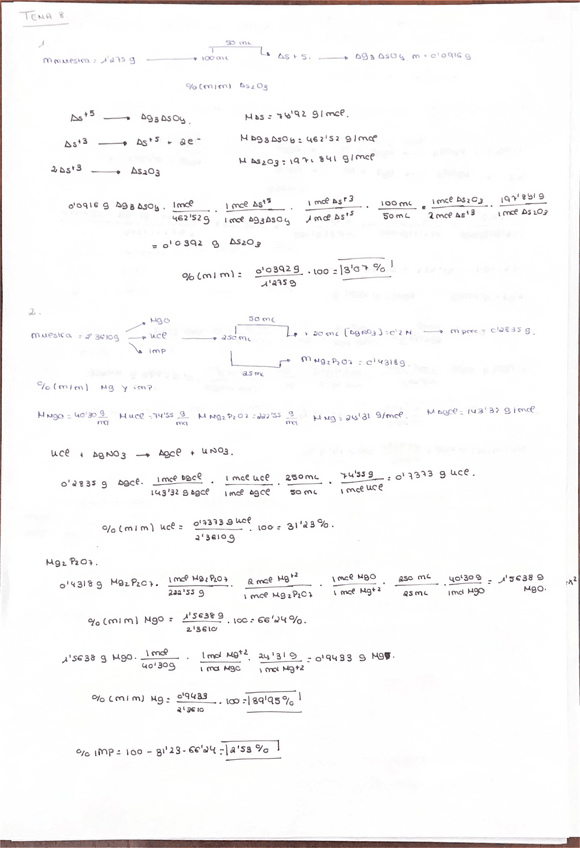 TEMA 8.
1
50 mL
m muestra = 1'275 g → 100 mL → As+5. → Ag3AsO4 m = 0'0916 g
% (m/m) As2O3
As+5 → Ag3AsO4. M As = 74'92 g/mol.
As+3 → As+5 + 2e- M Ag3AsO4 = 462'52 g/mol
2As+3 → As2O3 M As2O3 = 197'841 g/mol
0'0916 g Ag3AsO4 · 1mol / 462'52 g · 1 mol As+5 / 1 mol Ag3AsO4 · 1 mol As+3 / 1 mol As+5 · 100 mL / 50 mL · 1 mol As2O3 / 2 mol As+3 · 197'841 g / 1 mol As2O3
= 0'0392 g As2O3
% (m/m) = 0'0392 g / 1'275 g · 100 = 3'07 %
2.
MgO 50 mL
muestra = 2'3610g → KCl → 250 mL → + 20 mL [AgNO3] = 0'2 N → m prec = 0'2835 g.
IMP → m Mg2P2O7 = 0'4318g.
25 mL
% (m/m) Mg y imp.
M MgO = 40'30 g/mol M KCl = 74'55 g/mol M Mg2P2O7 = 222'55 g/mol M Mg = 24'31 g/mol. M AgCl = 143'32 g/mol.
KCl + AgNO3 → AgCl + KNO3.
0'2835 g AgCl · 1 mol AgCl / 143'32 g AgCl · 1 mol KCl / 1 mol AgCl · 250 mL / 50 mL · 74'55 g / 1 mol KCl = 0'7373 g KCl.
% (m/m) KCl = 0'7373 g KCl / 2'3610 g · 100 = 31'23 %.
Mg2P2O7.
0'4318 g Mg2P2O7 · 1 mol Mg2P2O7 / 222'55 g · 2 mol Mg+2 / 1 mol Mg2P2O7 · 1 mol MgO / 1 mol Mg+2 · 250 mL / 25 mL · 40'30 g / 1 mol MgO = 1'5638 g MgO.
% (m/m) MgO = 1'5638 g / 2'3610 · 100 = 66'24 %.
1'5638 g MgO · 1 mol / 40'30 g · 1 mol Mg+2 / 1 mol MgO · 24'31 g / 1 mol Mg+2 = 0'9433 g Mg.
% (m/m) Mg = 0'9433 / 2'3610 · 100 = 39'95 %
% IMP = 100 - 31'23 - 66'24 = 2'53 %